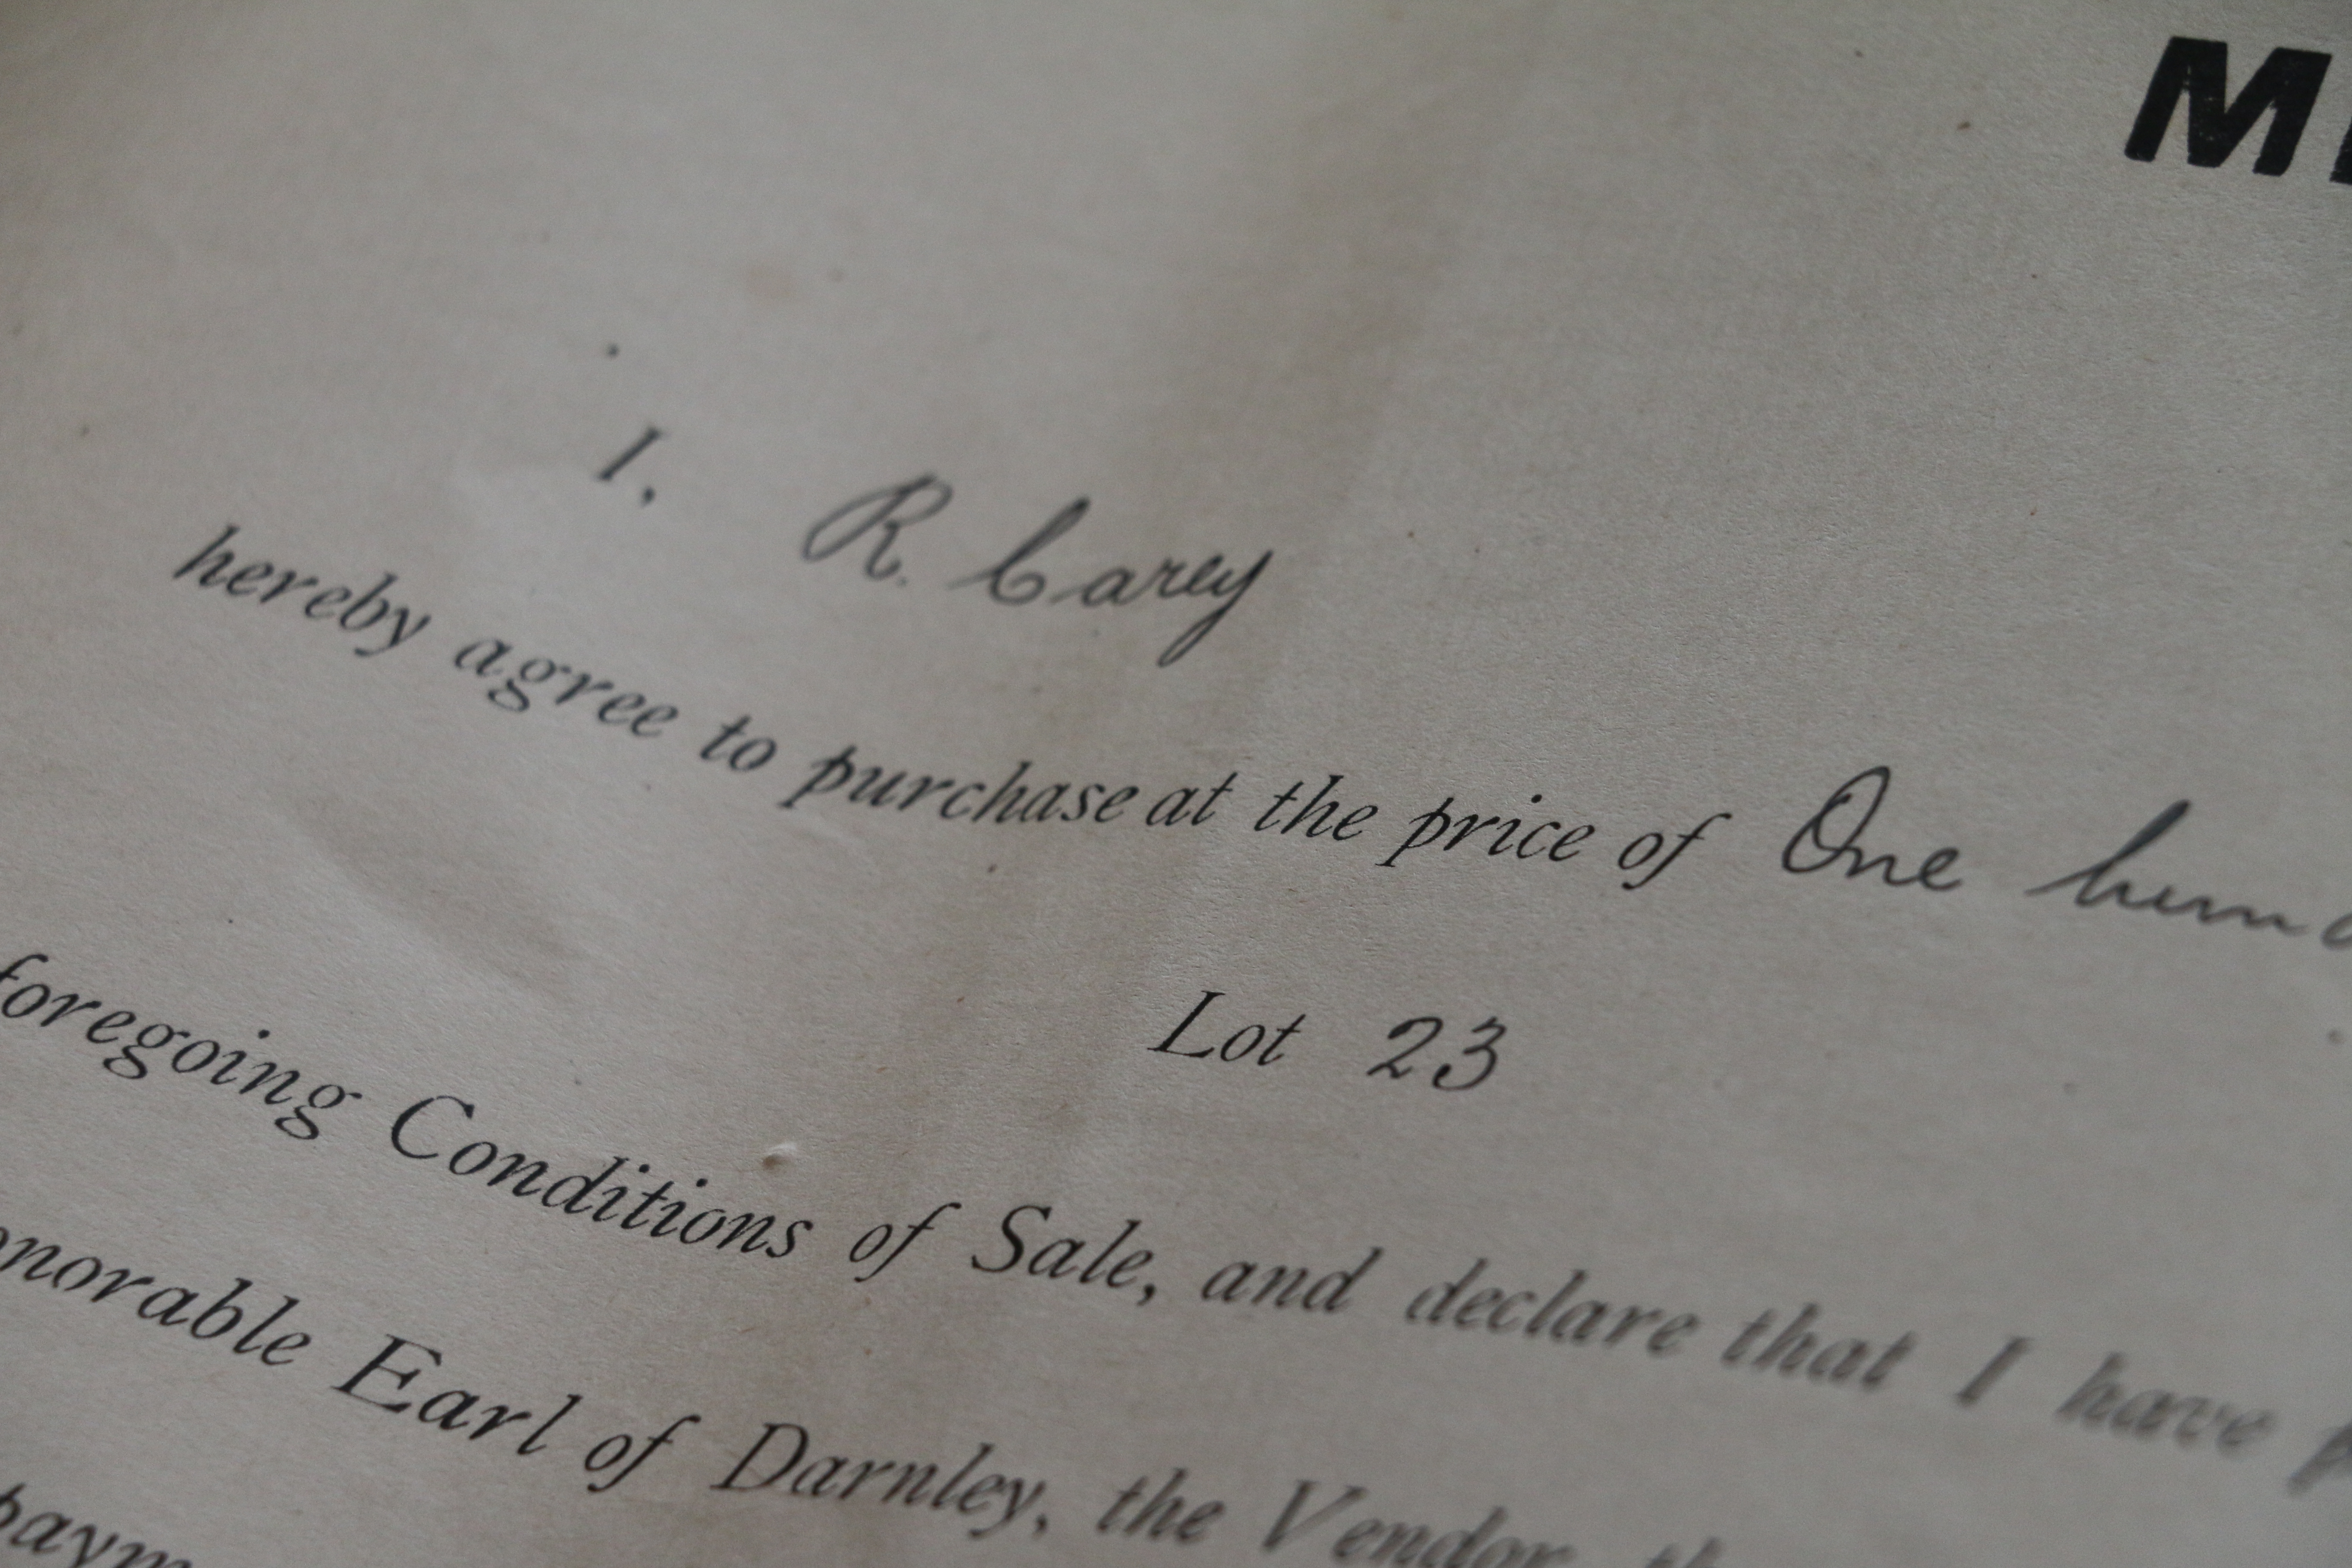 M
I, R. Carey
hereby agree to purchase at the price of One hund
Lot 23
foregoing Conditions of Sale, and declare that I have p
onorable Earl of Darnley, the Vendor, th
paym